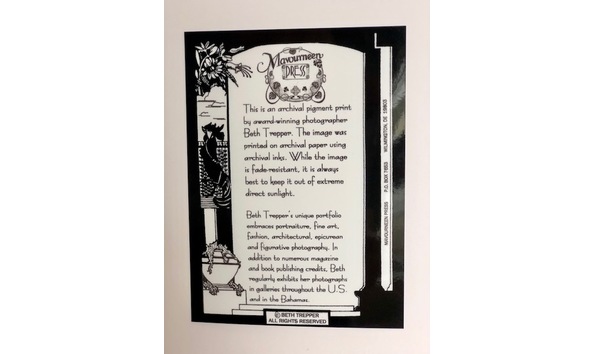 Mavourneen
PRESS
This is an archival pigment print
by award-winning photographer
Beth Trepper. The image was
printed on archival paper using
archival inks. While the image
is fade-resistant, it is always
best to keep it out of extreme
direct sunlight.
Beth Trepper's unique portfolio
embraces portraiture, fine art,
fashion, architectural, epicurean
and figurative photography. In
addition to numerous magazine
and book publishing credits, Beth
regularly exhibits her photographs
in galleries throughout the U.S.
and in the Bahamas.
© BETH TREPPER
ALL RIGHTS RESERVED
MAVOURNEEN PRESS P.O. BOX 7653 WILMINGTON, DE 19803